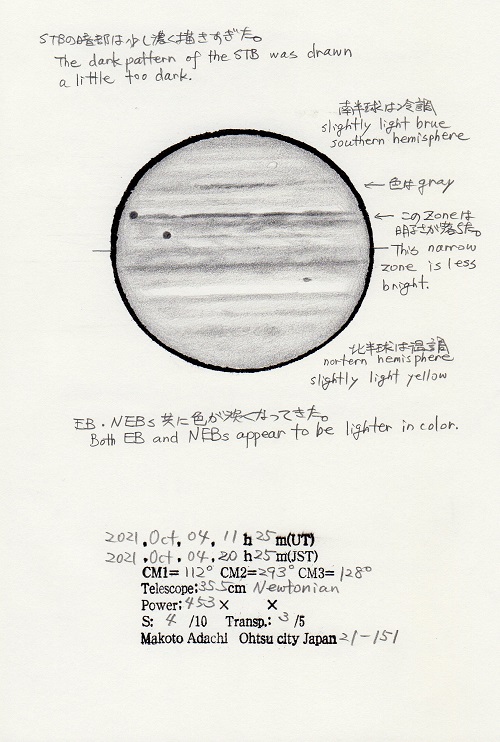 STBの暗部は少し濃く描きすぎた。
The dark pattern of the STB was drawn
a little too dark.
南半球は冷調
slightly light brue
southern hemisphere
← 色はgray
← このZoneは
明るさが落ちた。
This narrow
zone is less
bright.
北半球は温調
nortern hemisphere
slightly light yellow
EB・NEBs 共に色が淡くなってきた。
Both EB and NEBs appear to be lighter in color.
2021.Oct.04.11h25m(UT)
2021.Oct.04.20h25m(JST)
CM1=112° CM2=293° CM3=128°
Telescope:35.5cm Newtonian
Power:453× ×
S: 4 /10 Transp.: 3 /5
Makoto Adachi Ohtsu city Japan 21-151